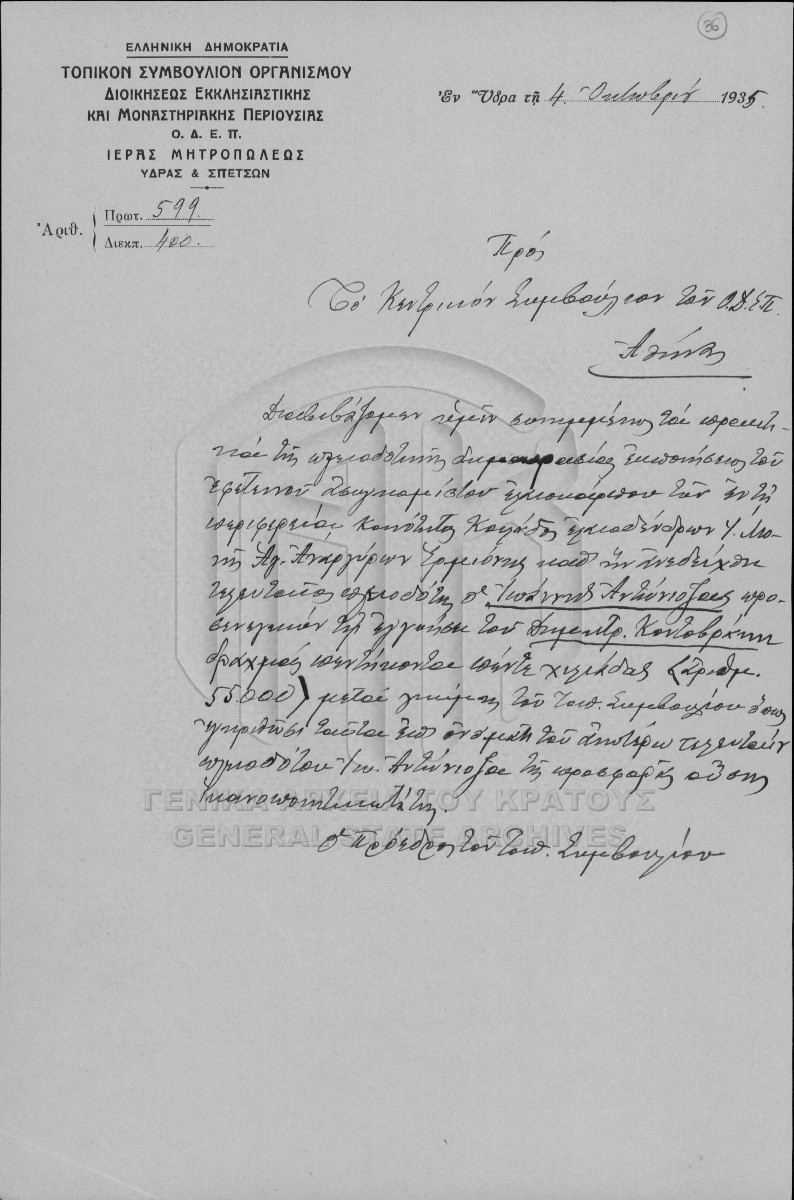 36
ΕΛΛΗΝΙΚΗ ΔΗΜΟΚΡΑΤΙΑ
ΤΟΠΙΚΟΝ ΣΥΜΒΟΥΛΙΟΝ ΟΡΓΑΝΙΣΜΟΥ
ΔΙΟΙΚΗΣΕΩΣ ΕΚΚΛΗΣΙΑΣΤΙΚΗΣ
ΚΑΙ ΜΟΝΑΣΤΗΡΙΑΚΗΣ ΠΕΡΙΟΥΣΙΑΣ
Ο. Δ. Ε. Π.
ΙΕΡΑΣ ΜΗΤΡΟΠΟΛΕΩΣ
ΥΔΡΑΣ & ΣΠΕΤΣΩΝ
Ἐν Ὕδρα τῇ 4 Ὀκτωβρίου 1935.
Ἀριθ. Πρωτ. 599.
Διεκπ. 400.
Πρός
Τό Κεντρικόν Συμβούλιον τοῦ Ο.Δ.Ε.Π.
Ἀθήνας
Διαβιβάζομεν ὑμῖν συνημμένως τά πρακτι-
κά τῆς πλειοδοτικῆς δημοπρασίας ἐκποιήσεως τοῦ
ἐφετεινοῦ ἐλαιοκάρπου τῶν ἐν τῇ
περιφερείᾳ Κοινότητος ἐλαιοδένδρων Ἱ. Μο-
νῆς Ἁγ. Ἀναργύρων Ἑρμιόνης καθ' ἥν ἀνεδείχθη
τελευταῖος πλειοδότης ὁ Ἰωάννης Ἀντώνιοζας προ-
σενεγκών τῇ ἐγγυήσει τοῦ Δημητρ. Κοντοβράκη
δραχμάς πεντήκοντα πέντε χιλιάδας (ἀριθμ.
55.000) μετά γνώμης τοῦ τοπ. Συμβουλίου ὅπως
ἐγκριθῶσι ταῦτα ἐπ' ὀνόματι τοῦ ἀνωτέρω τελευταίου
πλειοδότου Ἰω. Ἀντώνιοζα τῆς προσφορᾶς οὔσης
ἱκανοποιητικωτάτης.
Ὁ Πρόεδρος τοῦ τοπ. Συμβουλίου
ΓΕΝΙΚΑ ΑΡΧΕΙΑ ΤΟΥ ΚΡΑΤΟΥΣ
GENERAL STATE ARCHIVES